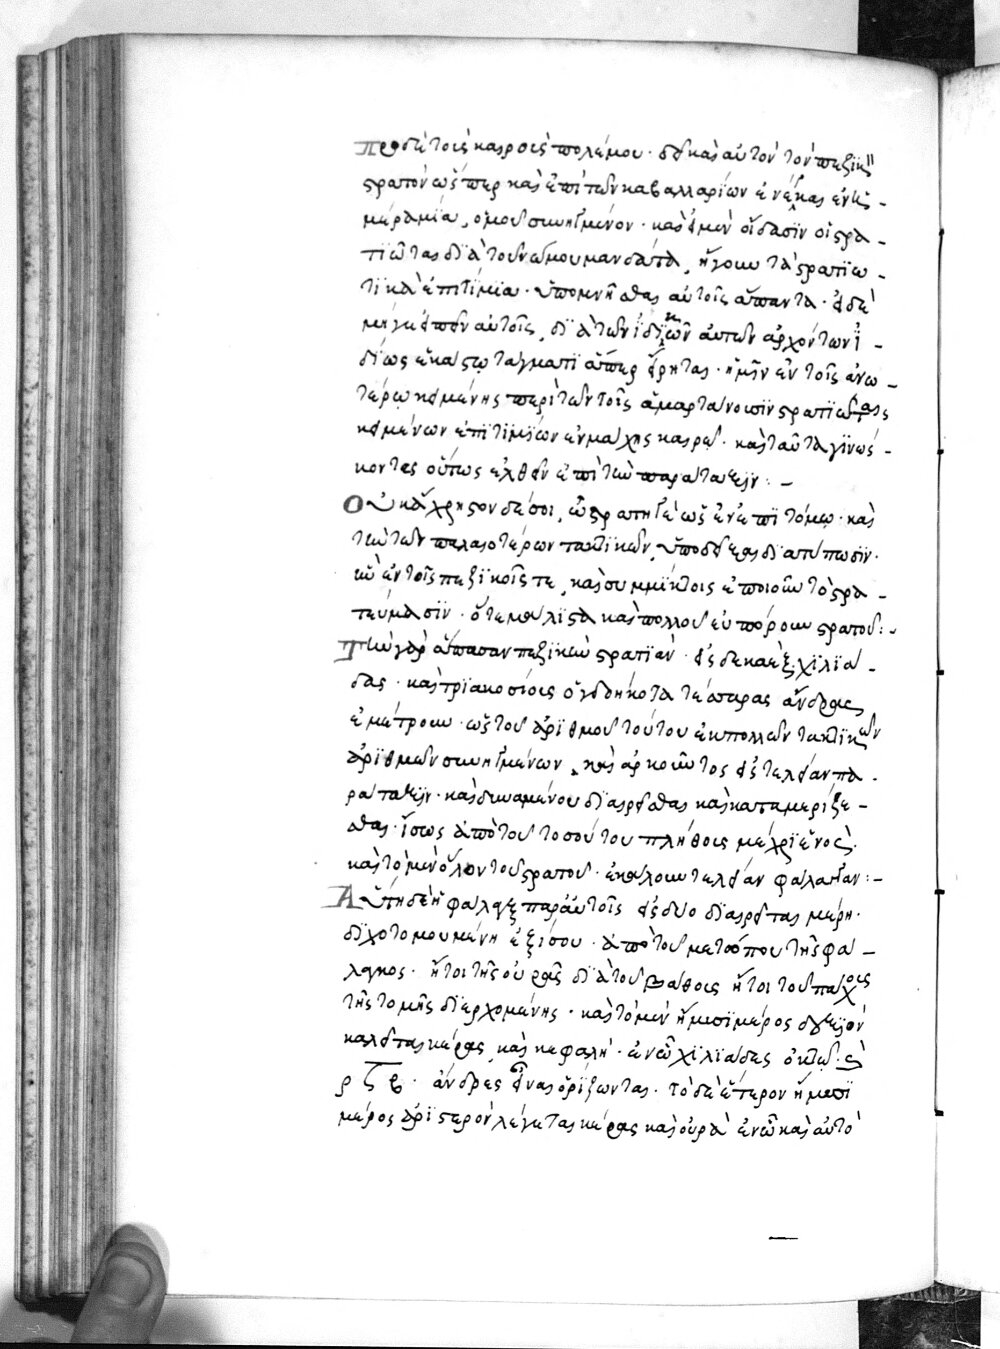 Πρὸ δὲ τοῖς καιροῖς πολέμου· δεῖ καὶ αὐτὸν τὸν πεζικὸν
στρατὸν ὥσπερ καὶ ἐπὶ τῶν καβαλλαρίων ἐνέγκαι ἐν
ἡμέρα μία, ὁμοῦ συνηγμένον· καὶ εἰ μὲν οἴδασιν οἱ στρα-
τιῶται διὰ τοῦ νόμου μανδάτα, ἤγουν τὰ στρατιω-
τικὰ ἐπιτίμια· ὑπομνῆσαι αὐτοῖς ἅπαντα· εἰ δὲ
μή γε εἰπεῖν αὐτοῖς, διὰ τῶν ἰδικῶν αὐτῶν ἀρχόντων ἰ-
δίως ἑκάστῳ τάγματι ἅπερ εἴρηται· ἡμῖν ἐν τοῖς ἀνω-
τέρω κειμένης περὶ τῶν τοῖς ἁμαρτάνουσιν στρατιώταις
κειμένων ἐπιτιμίων ἐν μάχης καιρῶ· καὶ ταῦτα γινώσ-
κοντες οὕτως ἐλθεῖν ἐπὶ τὴν παράταξιν: -
Οὐκ ἄχρηστον δέ σοι, ὦ στρατηγὲ ὡς ἐν ἐπιτόμω· καὶ
τὴν τῶν παλαιοτέρων τακτικῶν, ὑποδεῖξαι διατύπωσιν·
ἣν ἐν τοῖς πεζικοῖς τε, καὶ συμμίκτοις ἐποιοῦντο στρα-
τεύμασιν· ὅτε μάλιστα καὶ πολλοῦ εὐπόρουν στρατοῦ: -
Τὴν γὰρ ἅπασαν πεζικὴν στρατιὰν· εἰς δεκαὲξ χιλιά-
δας· καὶ τριακοσίους ὀγδοήκοντα τέσσαρας ἄνδρας
ἐμέτρουν· ὡς τοῦ ἀριθμοῦ τούτου ἐκ πολλῶν τακτικῶν
ἀριθμῶν συνηγμένων, καὶ ἀρκοῦντος εἰς τελείαν πα-
ράταξιν· καὶ δυναμένου διαιρεῖσθαι καὶ καταμερίζε-
σθαι· ἴσως ἀπὸ τοῦ τοσούτου πλήθους μέχρι ἑνός·
καὶ τὸ μὲν ὅλον τοῦ στρατοῦ· ἐκάλουν τελείαν φάλαγγαν: -
Αὕτη δὲ ἡ φάλαγξ παρ' αὐτοῖς εἰς δύο διαιρεῖται μέρη·
διχοτομουμένη ἐξίσου· ἀπὸ τοῦ μετώπου τῆς φά-
λαγγος· ἤτοι τῆς οὐρᾶς διὰ τοῦ βάθους ἤτοι τοῦ πάχους
τῆς τομῆς διερχομένης· καὶ τὸ μὲν ἥμισι μέρος δεξιὸν
καλεῖται κέρας, καὶ κεφαλή· ἐν ᾧ χιλιάδες ὀκτώ· καὶ
ρϟβ· ἄνδρες εἶναι ὁρίζονται· τὸ δὲ ἕτερον ἥμισι
μέρος ἀριστερὸν λέγεται κέρας καὶ οὐρὰ ἐν ᾧ καὶ αὐτὸ